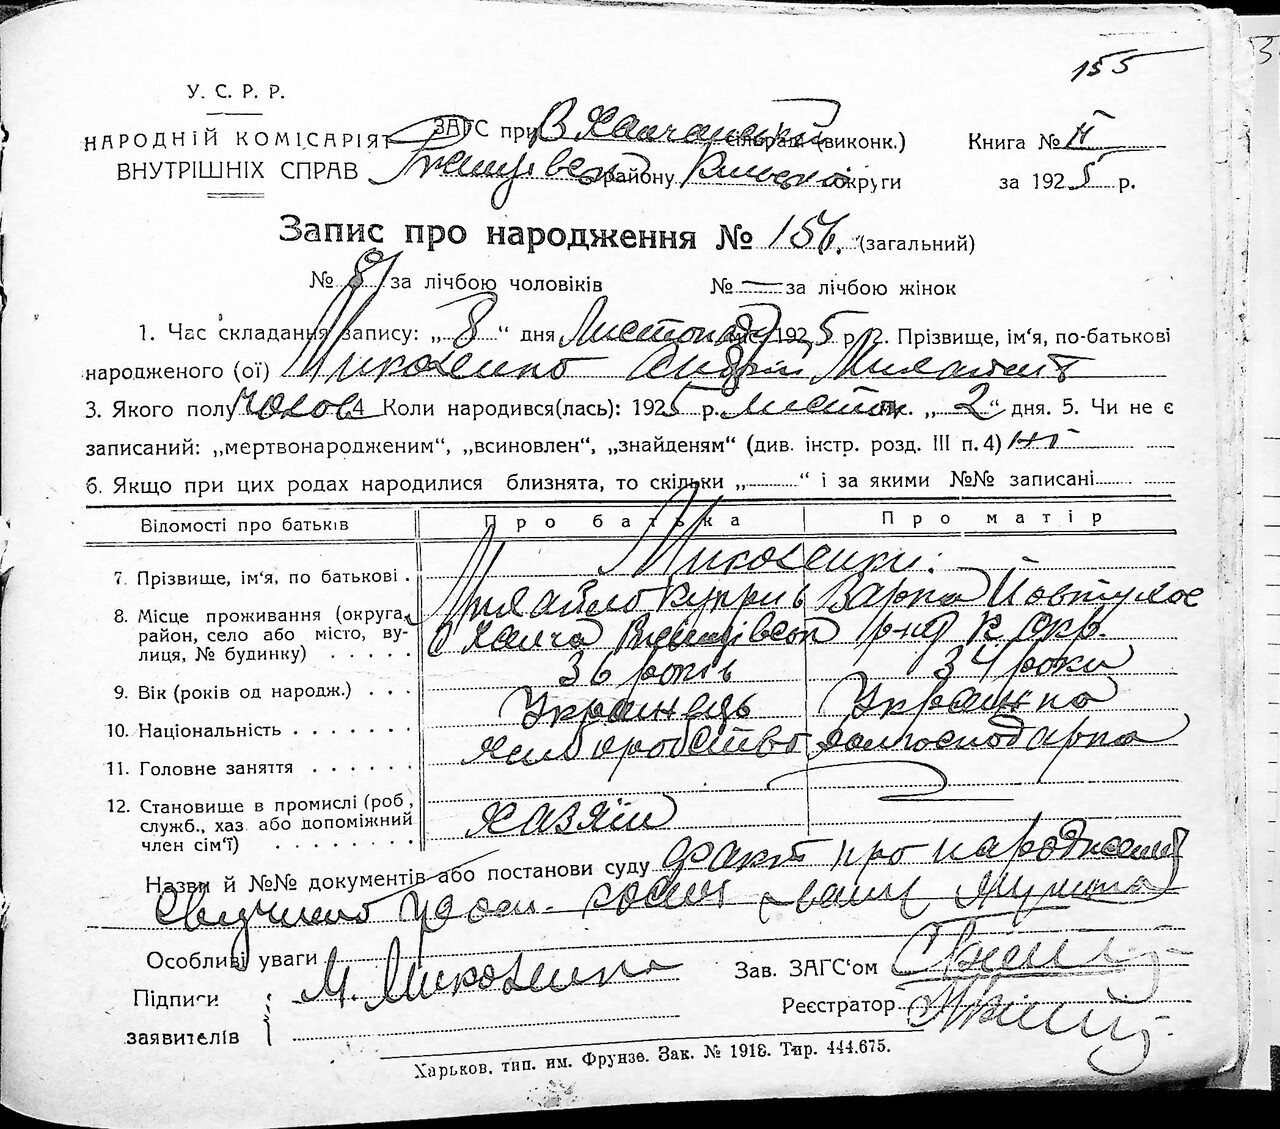 155
У. С. Р. Р.
НАРОДНІЙ КОМІСАРІЯТ
ВНУТРІШНІХ СПРАВ
ЗАГС при В Халчанській сільраді (виконк.)
району округи
Книга № II
за 1925 р.
Запис про народження № 156. (загальний)
№ 81 за лічбою чоловіків № — за лічбою жінок
1. Час складання запису: „8“ дня Листопаду міс. 1925 р. 2. Прізвище, ім'я, по-батькові
народженого (ої) Миколенко Андрій Михайл
3. Якого полу чолов 4 Коли народився(лась): 1925 р. листоп. „2“ дня. 5. Чи не є
записаний: „мертвонародженим“, „всиновлен“, „знайденям“ (див. інстр. розд. III п. 4) ні
6. Якщо при цих родах народилися близнята, то скільки „ “ і за якими №№ записані
Відомості про батьків Про батька Про матір
7. Прізвище, ім'я, по батькові Миколенки.
Михайло Купріїв Варка Йовтухов
8. Місце проживання (округа, район, село або місто, вулиця, № будинку) Халча р-ну К окр.
9. Вік (років од народж.) 36 років 34 роки
10. Національність Українець Українка
11. Головне заняття хліборобство домгосподарка
12. Становище в промислі (роб., служб., хаз або допоміжний член сім'ї) хазяїн
Назви й №№ документів або постанови суду факт про народження
Особливі уваги
Зав. ЗАГС'ом
Підписи заявителів М. Миколенко
Реєстратор
Харьков, тип. им. Фрунзе. Зак. № 1918. Тир. 444.675.